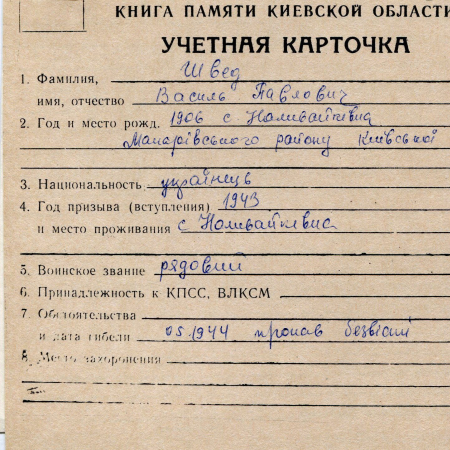 КНИГА ПАМЯТИ КИЕВСКОЙ ОБЛАСТИ
УЧЕТНАЯ КАРТОЧКА
1. Фамилия, Швед
имя, отчество Василь Павлович
2. Год и место рожд. 1906 с Наливайківка
Макарівського району Київської
3. Национальность українець
4. Год призыва (вступления) 1943
и место проживания с Наливайківка
5. Воинское звание рядовий
6. Принадлежность к КПСС, ВЛКСМ
7. Обстоятельства
и дата гибели 05.1944 пропав безвісти
8. Место захоронения